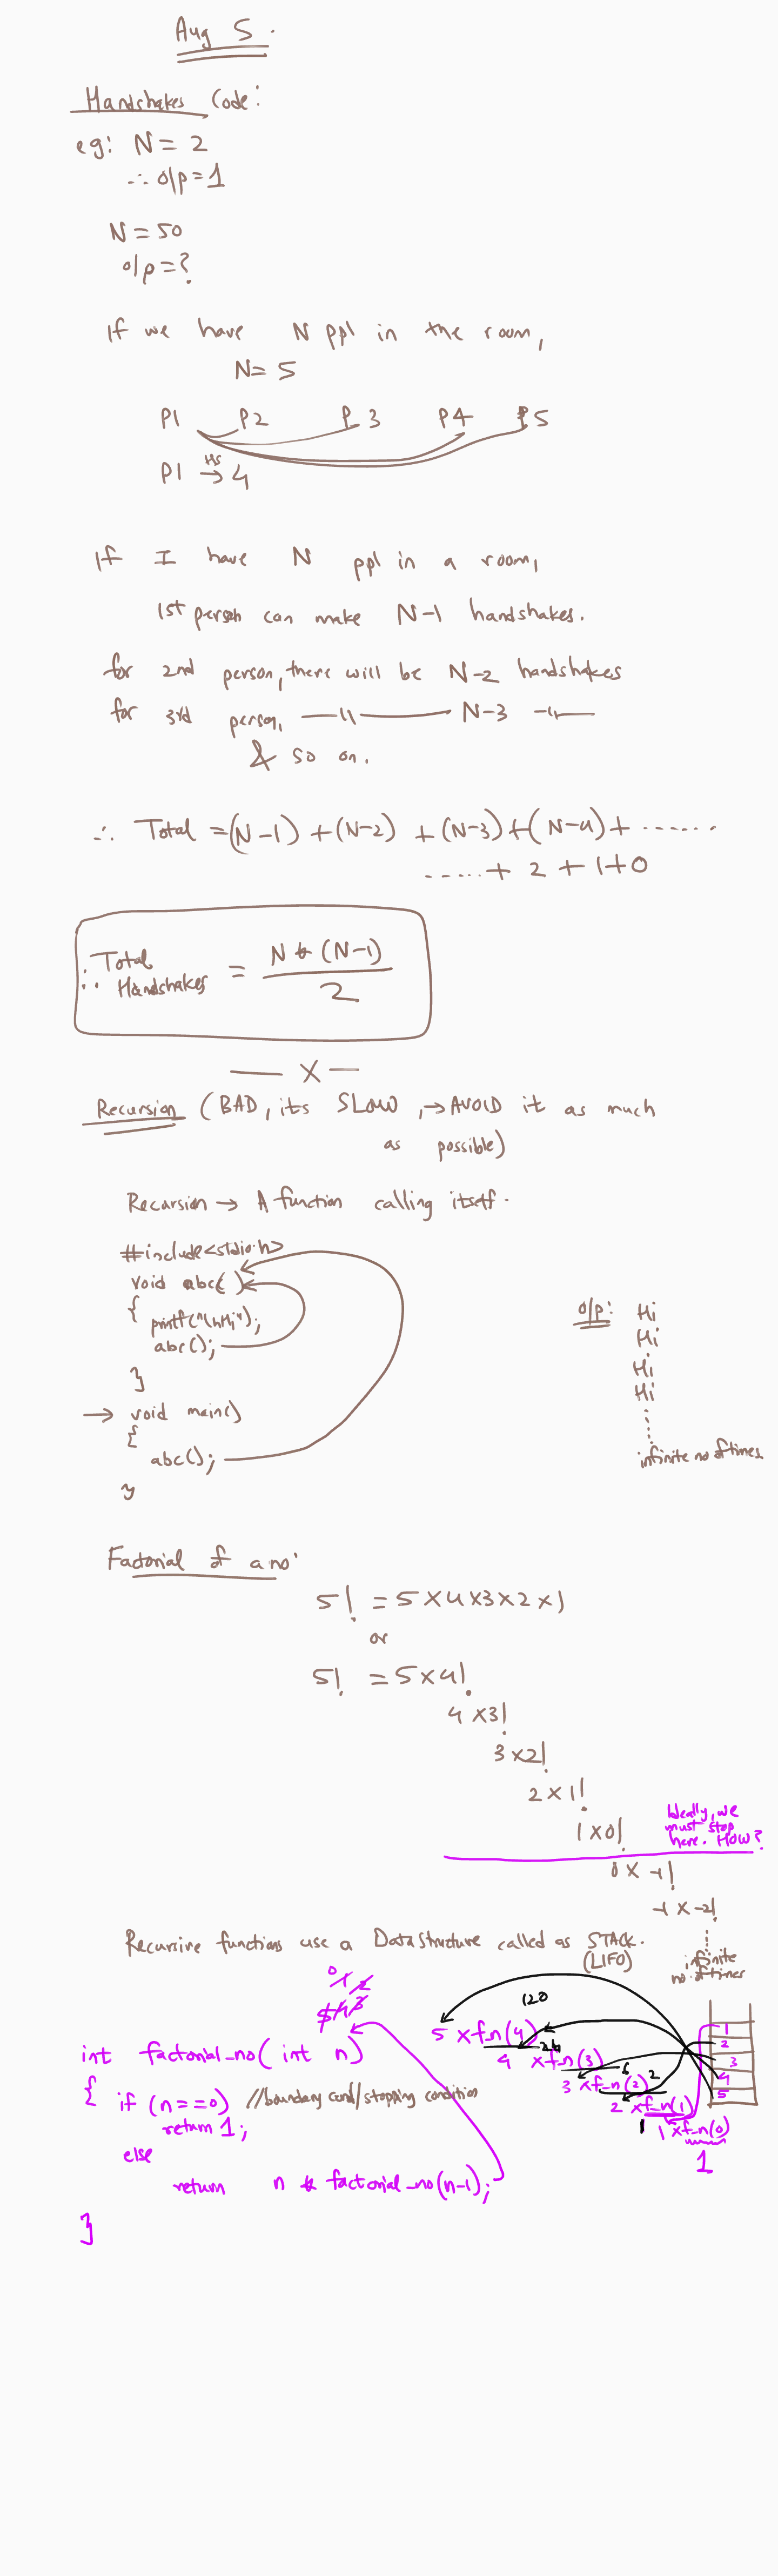 Aug 5.
Handshakes Code:
eg: N = 2
∴ o/p = 1
N = 50
o/p = ?
If we have N ppl in the room,
N = 5
P1 P2 P3 P4 P5
P1 HS→ 4
If I have N ppl in a room,
1st person can make N-1 handshakes.
for 2nd person, there will be N-2 handshakes
for 3rd person, —— 11 —— N-3 —11—
& so on.
∴ Total = (N-1) + (N-2) + (N-3) + (N-4) + ......
..... + 2 + 1 + 0
∴ Total Handshakes = N * (N-1) / 2
— X —
Recursion (BAD, its SLOW, → AVOID it as much
as possible)
Recursion → A function calling itself.
#include<stdio.h>
void abc()
{ printf("\nHi");
abc();
}
→ void main()
{
abc();
}
o/p: Hi
Hi
Hi
Hi
infinite no of times
Factorial of a no:
5! = 5 x 4 x 3 x 2 x 1
or
5! = 5 x 4!
4 x 3!
3 x 2!
2 x 1!
1 x 0!
Ideally, we
must stop
here. HOW?
0 x -1!
-1 x -2!
infinite
no of times
Recursive functions use a Data Structure called as STACK.
(LIFO)
0 1 2
5 4 3
int factorial_no( int n)
{ if (n==0) //boundary cond/stopping condition
return 1;
else
return n * factorial_no(n-1);
}
120
5 x f_n(4)
24
4 x f_n(3)
6
3 x f_n(2)
2
2 x f_n(1)
1
1 x f_n(0)
1
1
2
3
4
5